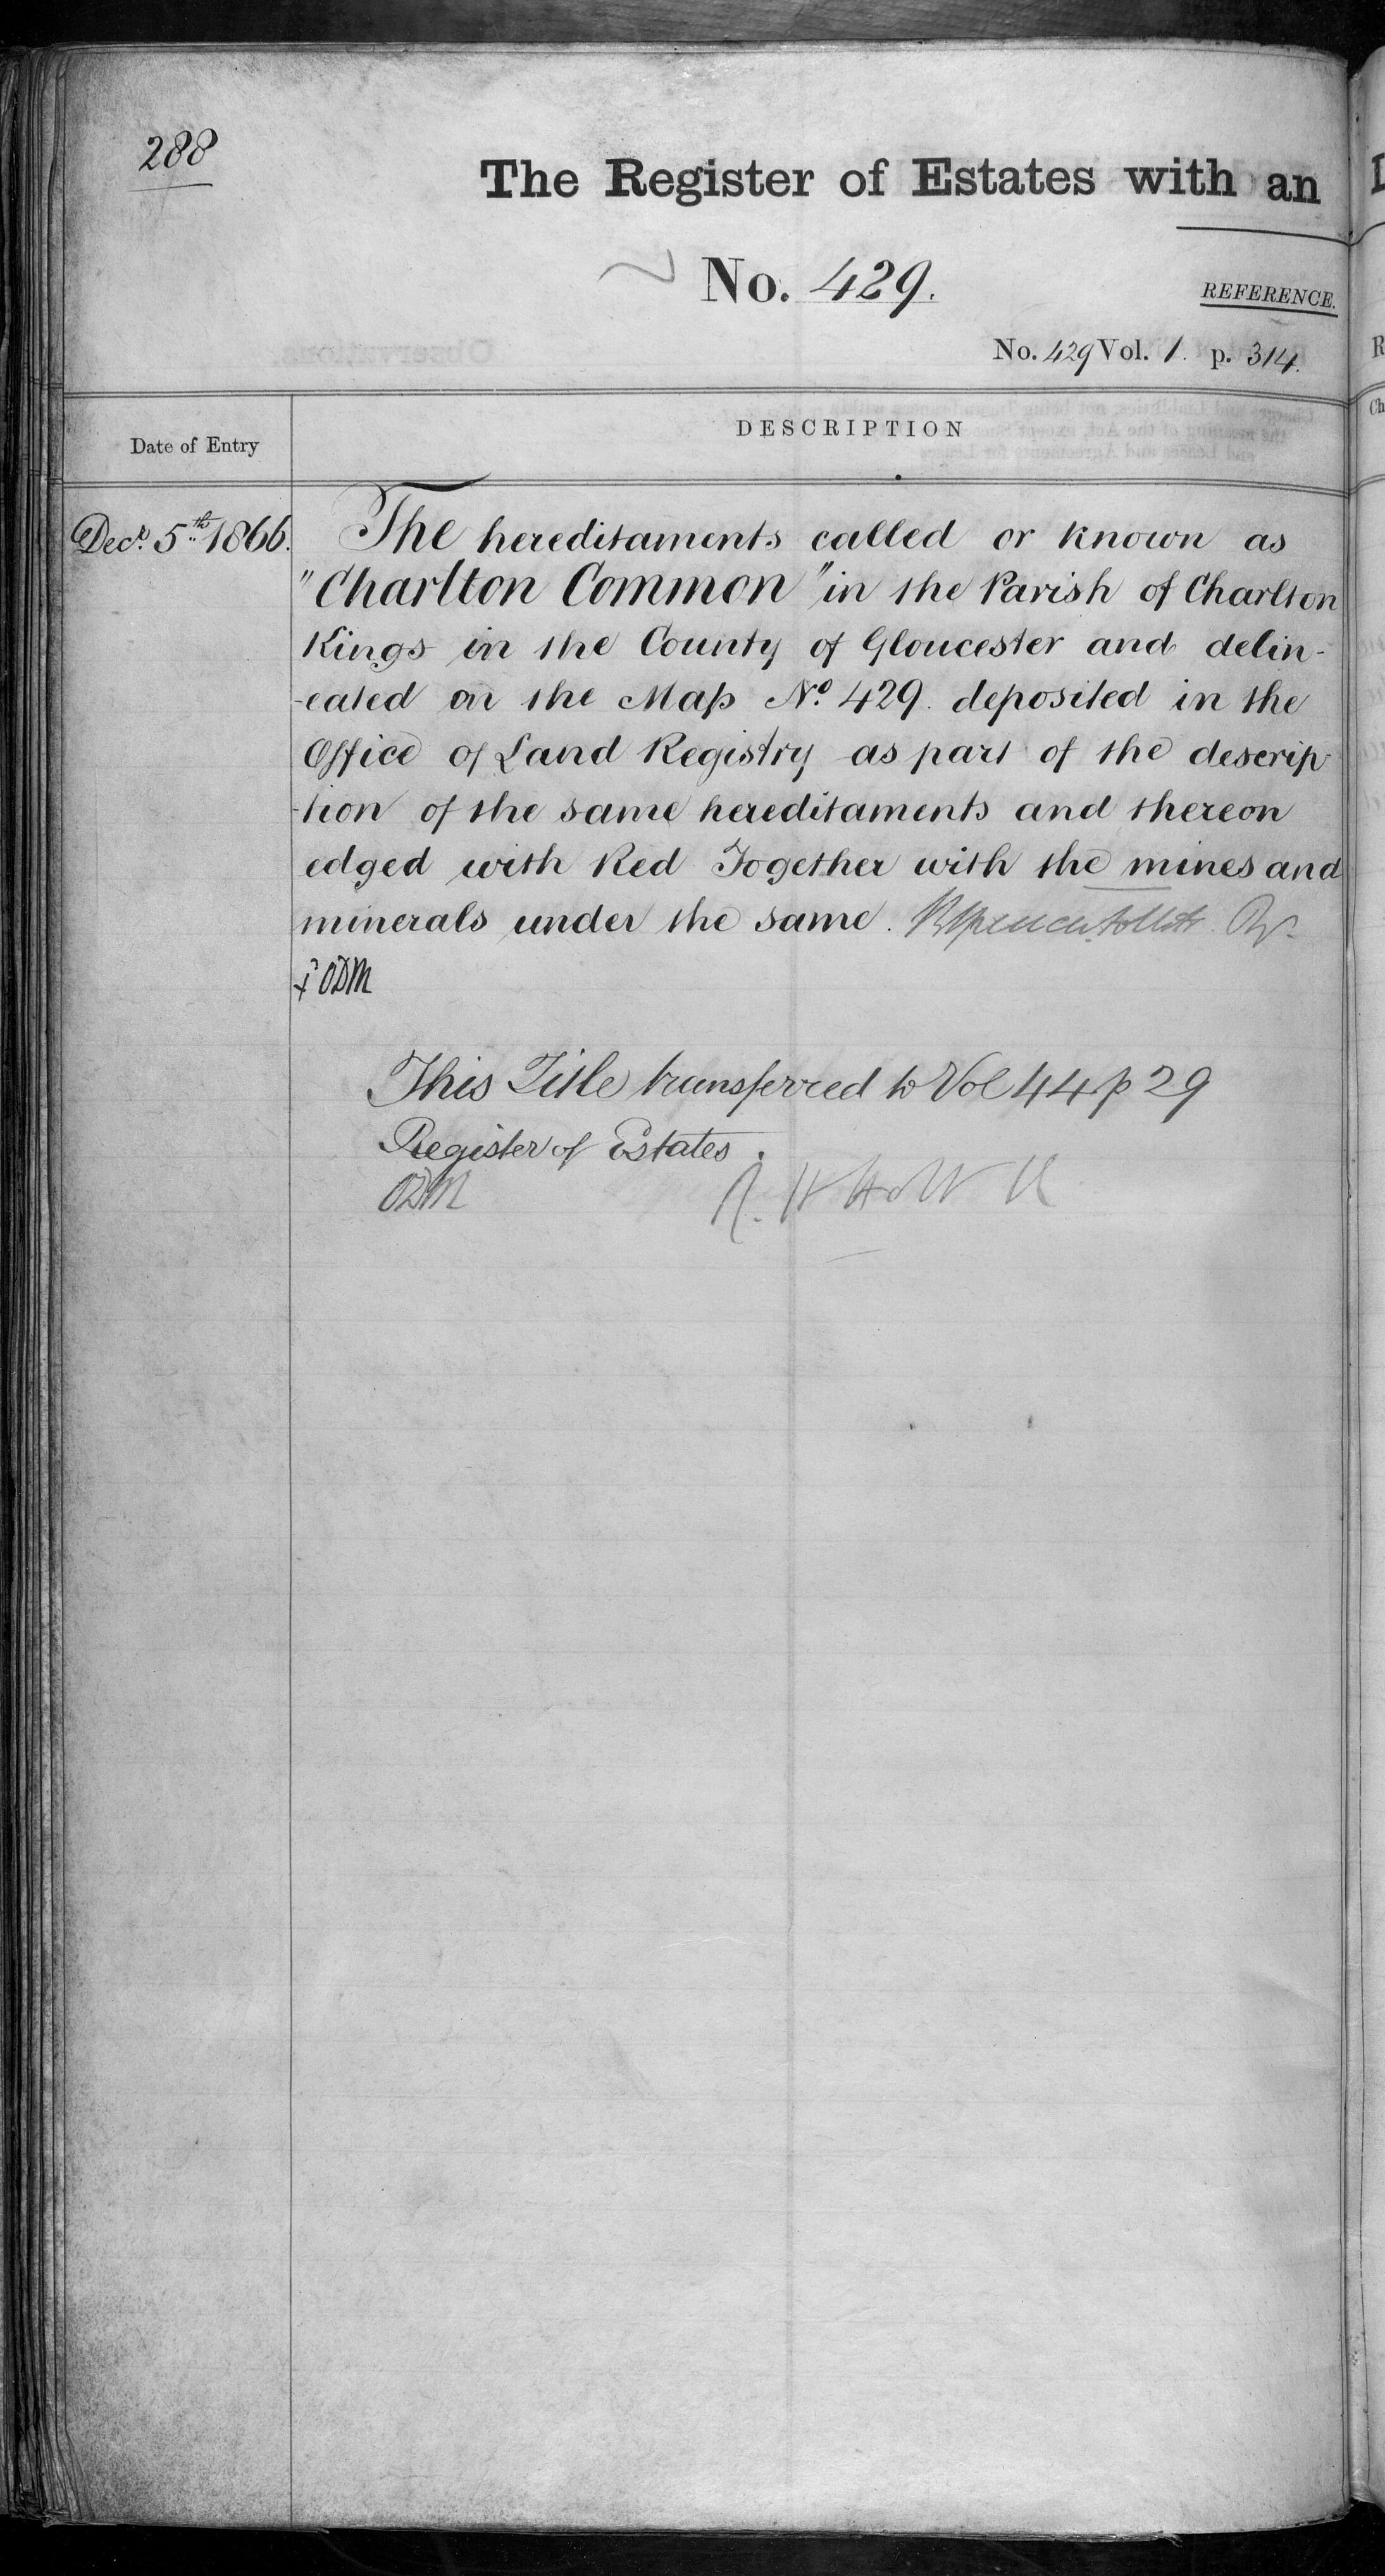 288
The Register of Estates with an
No. 429.
REFERENCE.
No. 429 Vol. 1. p. 314.
Date of Entry
DESCRIPTION
Decr. 5th 1866.
The hereditaments called or known as
"Charlton Common" in the Parish of Charlton
Kings in the County of Gloucester and delin-
-eated on the Map No. 429. deposited in the
Office of Land Registry as part of the descrip-
-tion of the same hereditaments and thereon
edged with Red Together with the mines and
minerals under the same.
ODM
This Title transferred to Vol 44 p 29
Register of Estates.
ODM